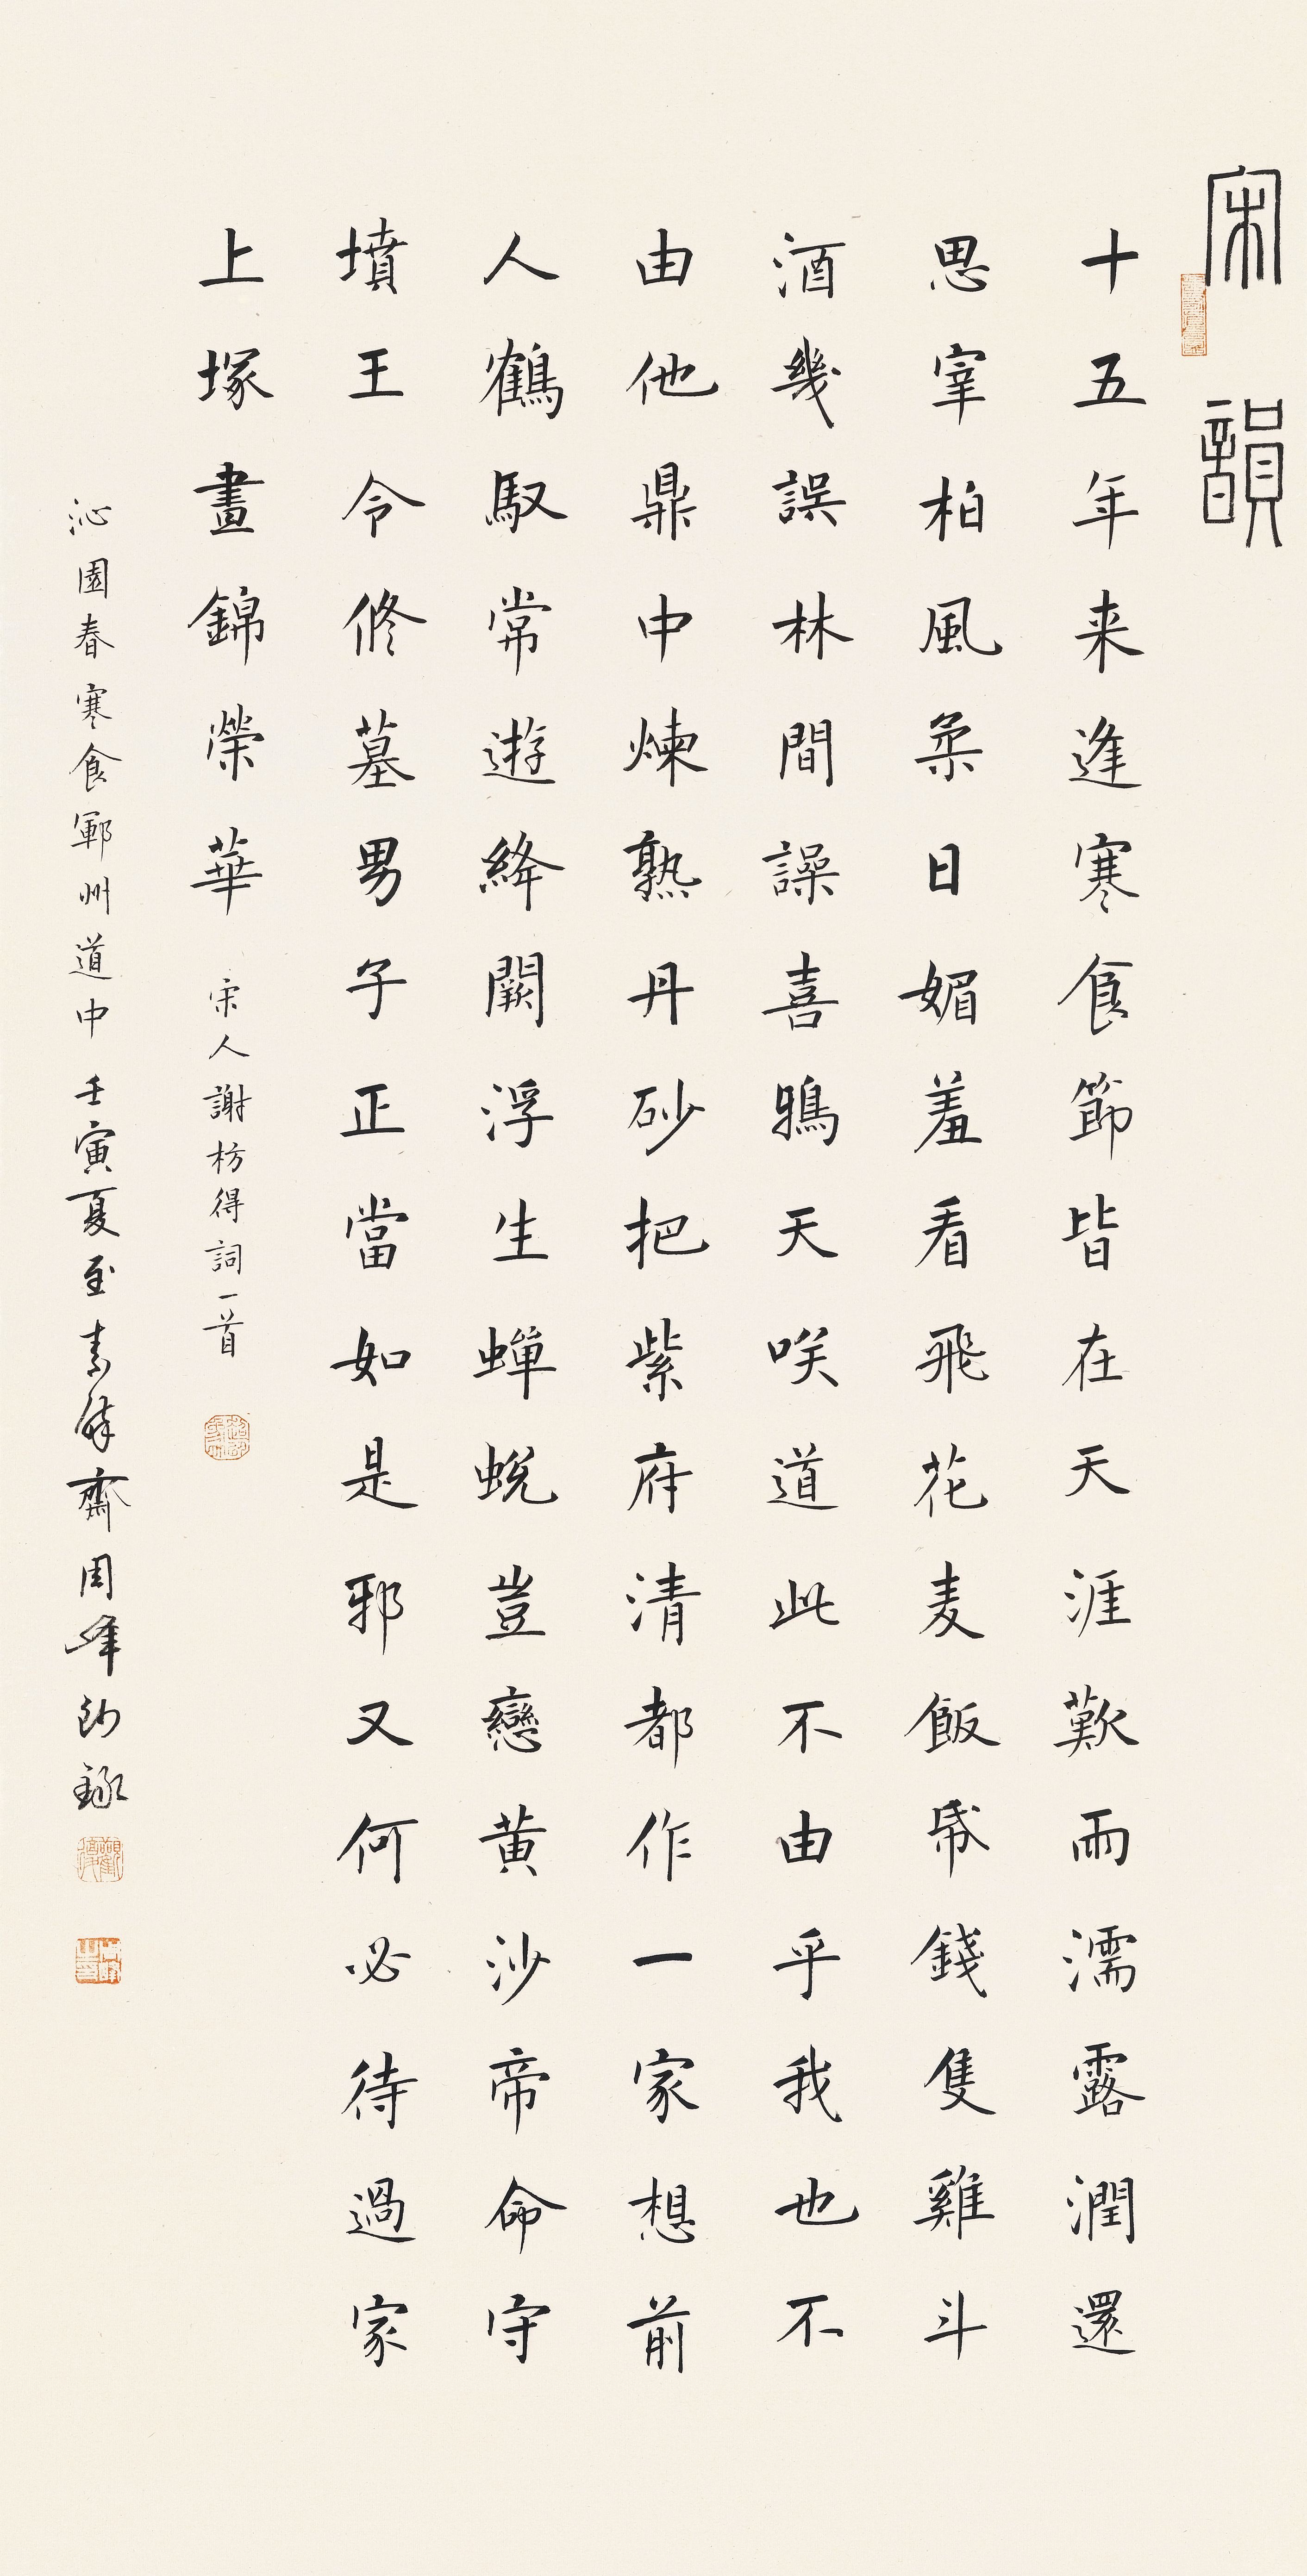 宋韻
十五年来逢寒食節皆在天涯歎雨濡露潤還
思宰柏風柔日媚羞看飛花麦飯帋錢隻雞斗
酒幾誤林間譟喜鴉天咲道此不由乎我也不
由他鼎中煉熟丹砂把紫府清都作一家想前
人鶴馭常遊絳闕浮生蟬蛻豈戀黃沙帝命守
墳王令修墓男子正當如是邪又何必待過家
上塚晝錦榮華 宋人謝枋得詞一首
沁園春寒食鄆州道中 壬寅夏至素餘齋周峰鈔錄